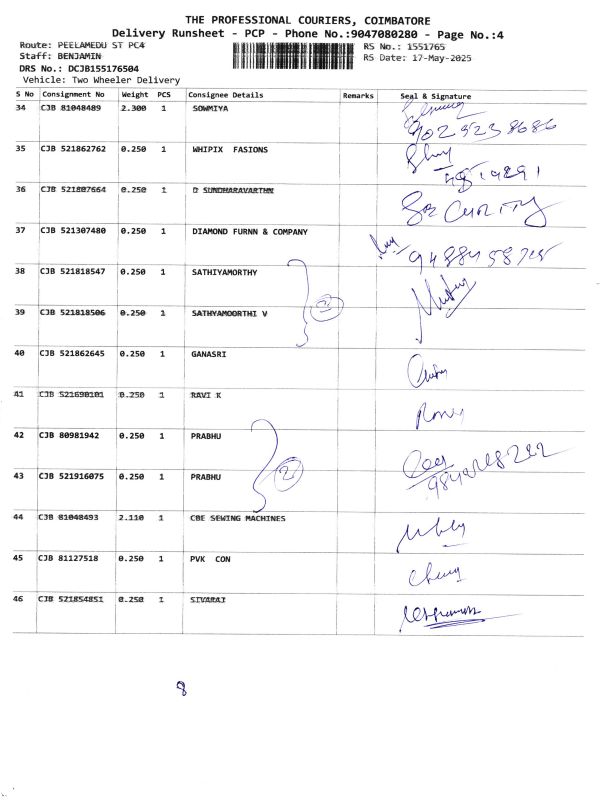 THE PROFESSIONAL COURIERS, COIMBATORE
Delivery Runsheet - PCP - Phone No.:9047080280 - Page No.:4
Route: PEELAMEDU ST PC4 RS No.: 1551765
Staff: BENJAMIN RS Date: 17-May-2025
DRS No.: DCJB155176504
Vehicle: Two Wheeler Delivery
S No Consignment No Weight PCS Consignee Details Remarks Seal & Signature
34 CJB 81048489 2.300 1 SOWMIYA
35 CJB 521862762 0.250 1 WHIPIX FASIONS
36 CJB 521807664 0.250 1 D SUNDHARAVARTHN
37 CJB 521307480 0.250 1 DIAMOND FURNN & COMPANY
38 CJB 521818547 0.250 1 SATHIYAMORTHY
39 CJB 521818506 0.250 1 SATHYAMOORTHI V
2
40 CJB 521862645 0.250 1 GANASRI
41 CJB 521690101 0.250 1 RAVI K
42 CJB 80981942 0.250 1 PRABHU
43 CJB 521916075 0.250 1 PRABHU
2
44 CJB 81048493 2.110 1 CBE SEWING MACHINES
45 CJB 81127518 0.250 1 PVK CON
46 CJB 521854851 0.250 1 SIVARAJ
8